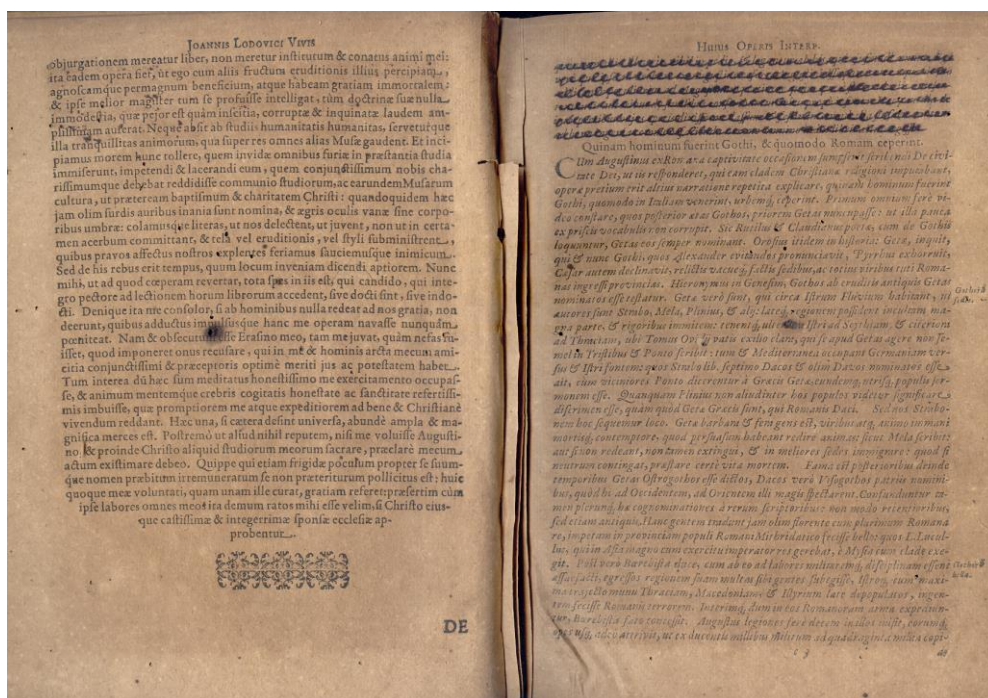 JOANNIS LODOVICI VIVIS
objurgationem mereatur liber, non meretur institutum & conatus animi mei:
ita eadem opera fiet, ut ego cum aliis fructum eruditionis illius percipiam,
agnoscamque permagnum beneficium, atque habeam gratiam immortalem:
& ipse melior magister tum se profuisse intelligat, tùm doctrinæ suæ nulla
immodestia, quæ pejor est quàm inscitia, corruptæ & inquinatæ laudem am-
plissimam auferat. Neque absit ab studiis humanitatis humanitas, servetur que
illa tranquillitas animorum, qua super res omnes alias Musæ gaudent. Et inci-
piamus morem hunc tollere, quem invidæ omnibus furiæ in præstantia studia
immiserunt, impetendi & lacerandi eum, quem conjunctissimum nobis cha-
rissimumque debebat reddidisse communio studiorum, ac earundem Musarum
cultura, ut præteream baptismum & charitatem Christi: quandoquidem hæc
jam olim surdis auribus inania sunt nomina, & ægris oculis vanæ sine corpo-
ribus umbræ: colamusque literas, ut nos delectent, ut juvent, non ut in certa-
men acerbum committant, & tela vel eruditionis, vel styli subministrent,
quibus pravos affectus nostros explentes feriamus sauciemusque inimicum.
Sed de his rebus erit tempus, quum locum inveniam dicendi aptiorem. Nunc
mihi, ut ad quod cœperam revertar, tota spes in iis est, qui candido, qui inte-
gro pectore ad lectionem horum librorum accedent, sive docti sint, sive indo-
cti. Denique ita me consolor, si ab hominibus nulla redeat ad nos gratia, non
deerunt, quibus adductus impulsusque hanc me operam navasse nunquam
pœniteat. Nam & obsecutum esse Erasmo meo, tam me juvat, quàm nefas fu-
isset, quod imponeret onus recusare, qui in me & hominis arcta mecum ami-
citia conjunctissimi & præceptoris optimè meriti jus ac potestatem habet.
Tum interea dū hæc sum meditatus honestissimo me exercitamento occupas-
se, & animum mentemque crebris cogitatis honestate ac sanctitate refertissi-
mis imbuisse, quæ promptiorem me atque expeditiorem ad bene & Christianè
vivendum reddant. Hæc una, si cætera desint universa, abundè ampla & ma-
gnifica merces est. Postremò ut aliud nihil reputem, nisi me voluisse Augusti-
no & proinde Christo aliquid studiorum meorum sacrare, præclarè mecum
actum existimare debeo. Quippe qui etiam frigidæ poculum propter se suum-
que nomen præbitum irremuneratum se non præteriturum pollicitus est: huic
quoque meæ voluntati, quam unam ille curat, gratiam referet: præsertim cùm
ipse labores omnes meos ita demum ratos mihi esse velim, si Christo ejus-
que castissimæ & integerrimæ sponsæ ecclesiæ ap-
probentur.
DE
HUIUS OPERIS INTERP.
Quinam hominum fuerint Gothi, & quomodo Romam ceperint.
CUm Augustinus ex Romana captivitate occasionem sumpserit scribendi De civi-
tate Dei, ut iis responderet, qui eam cladem Christianæ religioni imputabant,
operæ pretium erit altius narratione repetita explicare, quinam hominum fuerint
Gothi, quomodo in Italiam venerint, urbemq; ceperint. Primum omnium ferè vi-
deo constare, quos posterior ætas Gothos, priorem Getas nuncupasse: ut ista pauca
ex priscis vocabulis non corrupit. Sic Rutilius & Claudianus poëtæ, cum de Gothis
loquuntur, Getas eos semper nominant. Orosius itidem in historia: Getæ, inquit,
qui & nunc Gothi, quos Alexander evitandos pronunciavit, Pyrrhus exhorruit,
Cæsar autem declinavit, relictis vacuefactis sedibus, ac totis viribus toti Roma-
nas ingressi provincias. Hieronymus in Genesim, Gothos ab eruditis antiquis Getas
nominatos esse testatur. Getæ verò sunt, qui circa Istrum Fluvium habitant, ut
autores sunt Strabo, Mela, Plinius, & alij: lateq; regionem possident incultam ma-
gna parte, & rigoribus immitem: tenentq; ultra Istri ad Scythiam, & citeriora
ad Thraciam, ubi Tomos Ovidij patis exilio clari, qui se apud Getas agere non se-
mel in Tristibus & Ponto scribit: tum & Mediterranea occupant Germaniam ver-
sus & Istri fontem: quos Strabo lib. septimo Dacos & olim Davos nominatos esse
ait, cum viciniores Ponto dicerentur à Græcis Getæ, eundemq; utrisq; populis ser-
monem esse. Quanquam Plinius non aliud inter hos populos videtur significare
discrimen esse, quàm quod Getæ Græcis sint, qui Romanis Daci. Sed nos Strabo-
nem hoc sequemur loco. Getæ barbara & fera gens est, viribus atq; animo immani
mortisq; contemptore, quod persuasum habeant redire animas: sicut Mela scribit:
aut si non redeant, non tamen extingui, & in meliores sedes immigrare: quod si
neutrum contingat, præstare certè vita mortem. Fama est posterioribus deinde
temporibus Getas Ostrogothos esse dictos, Dacos verò Visogothos patriis nomini-
bus, quòd hi ad Occidentem, ad Orientem illi magis spectarent. Confunduntur ta-
men plerunq; hæ cognominationes à rerum scriptoribus: non modo recentioribus,
sed etiam antiquis. Hanc gentem tradunt jam olim florente cum plurimum Romana
re, impetum in provinciam populi Romani Mithridatico fecisse bello: quos L. Lucul-
lus, qui in Asia magno cum exercitu imperator res gerebat, è Mysia cum clade exe-
git. Post verò Burebista duce, cum ab eo ad labores militaremq; disciplinam essent
assuefacti, egressos regionem suam multas sibi gentes subegisse, Istroq; cum maxi-
ma trajecto manu Thraciam, Macedoniam, & Illyrium late depopulatos, ingen-
tem fecisse Romanis terrorem. Interimq; dum in eos Romanorum arma expediun-
tur, Burebista fato concessit. Augustus legiones ferè decem in illos misit, eorumq;
opes usq; adeo attrivit, ut ex ducentis millibus militum ad quadraginta millia copi-
c 3